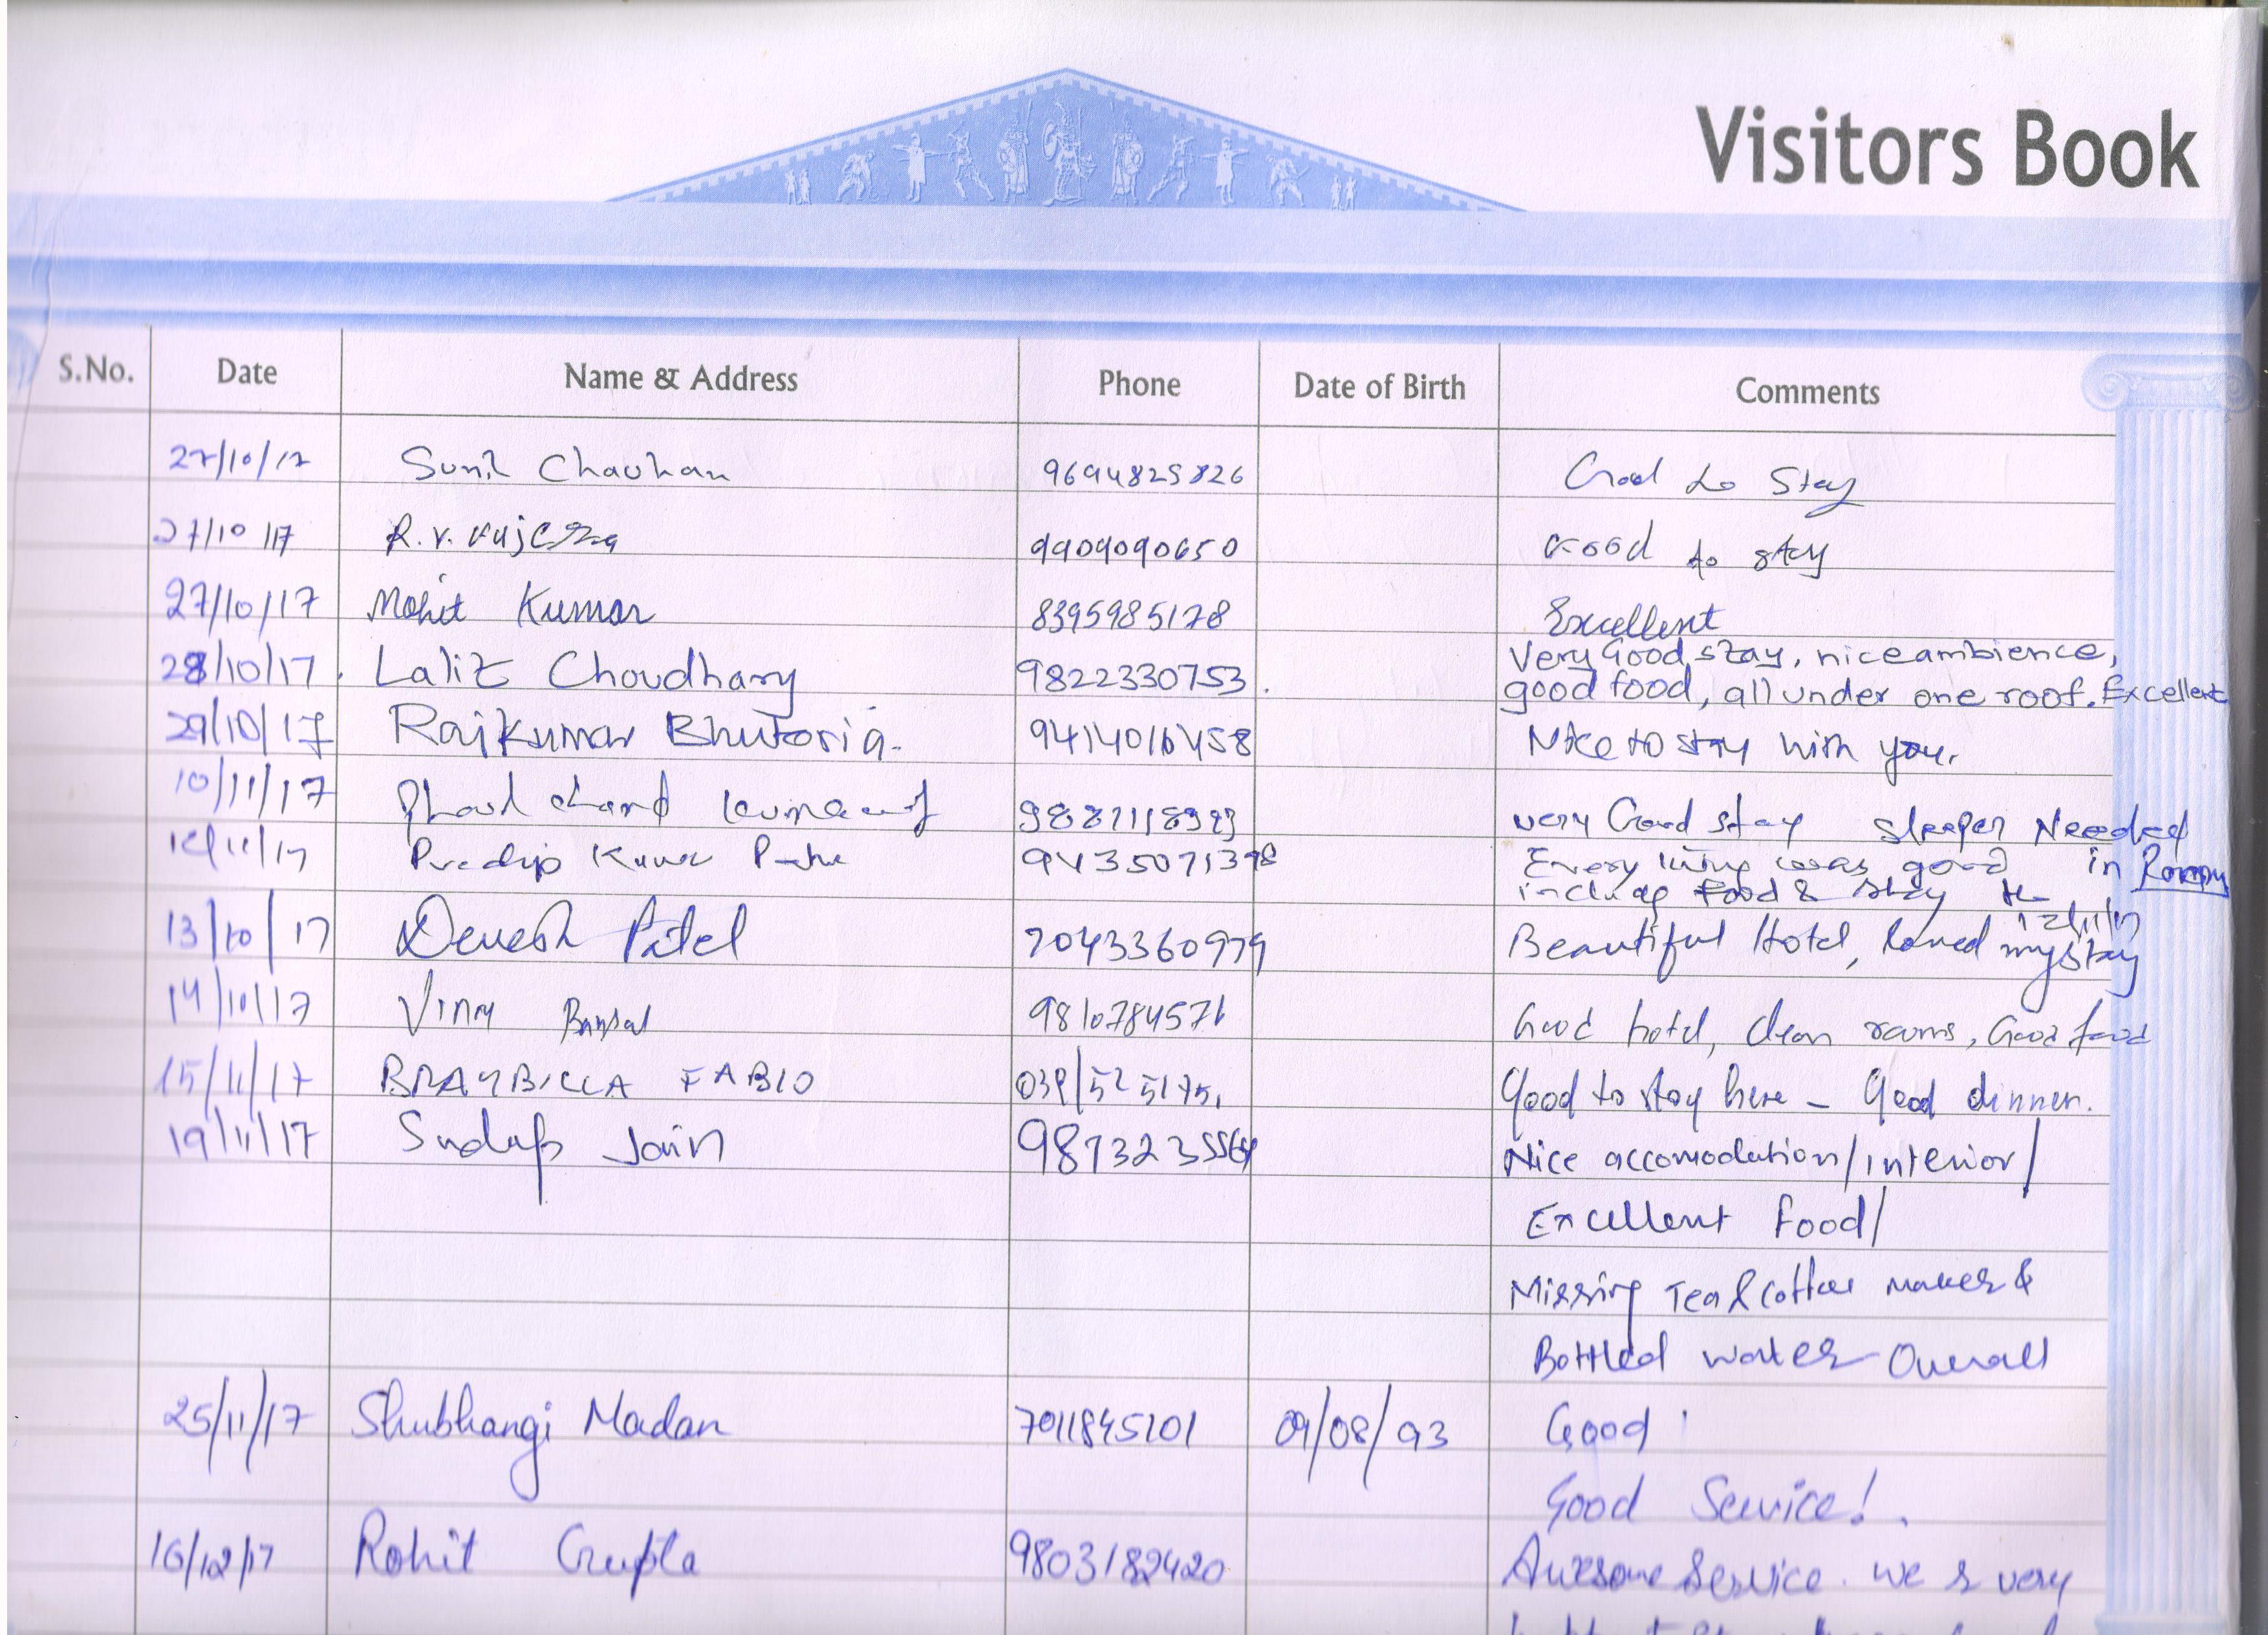 Visitors Book
S.No. Date Name & Address Phone Date of Birth Comments
27/10/17 Sunil Chauhan 9694825826 Good to Stay
27/10/17 R.V. 9909090650 Good to stay
27/10/17 Mohit Kumar 8395985178 Excellent
28/10/17. Lalit Choudhary 9822330753. Very Good stay, nice ambience,
good food, all under one roof. Excellent
29/10/17 Rajkumar Bhutoria. 9414016458 Nice to stay with you.
10/11/17 very Good stay Sleeper Needed
12/11/17 Pradip Kumar 9435071398 Every thing was good in Rooms
includg food & stay
12/11/17
13/10/17 Devesh Patel 7043360979 Beautiful Hotel, loved my stay
14/10/17 Vinay Bansal 9810784571 Good hotel, clean rooms, Good food
15/11/17 FABIO Good to stay here - Good dinner.
19/11/17 Jain Nice accomodation/interior/
Excellent Food/
Missing Tea & Coffee maker &
Bottled water Overall
25/11/17 Shubhangi Madan 7011845101 09/08/93 Good
Good Service!.
16/12/17 Rohit Gupta 9803182420 Awesome Service. we r very